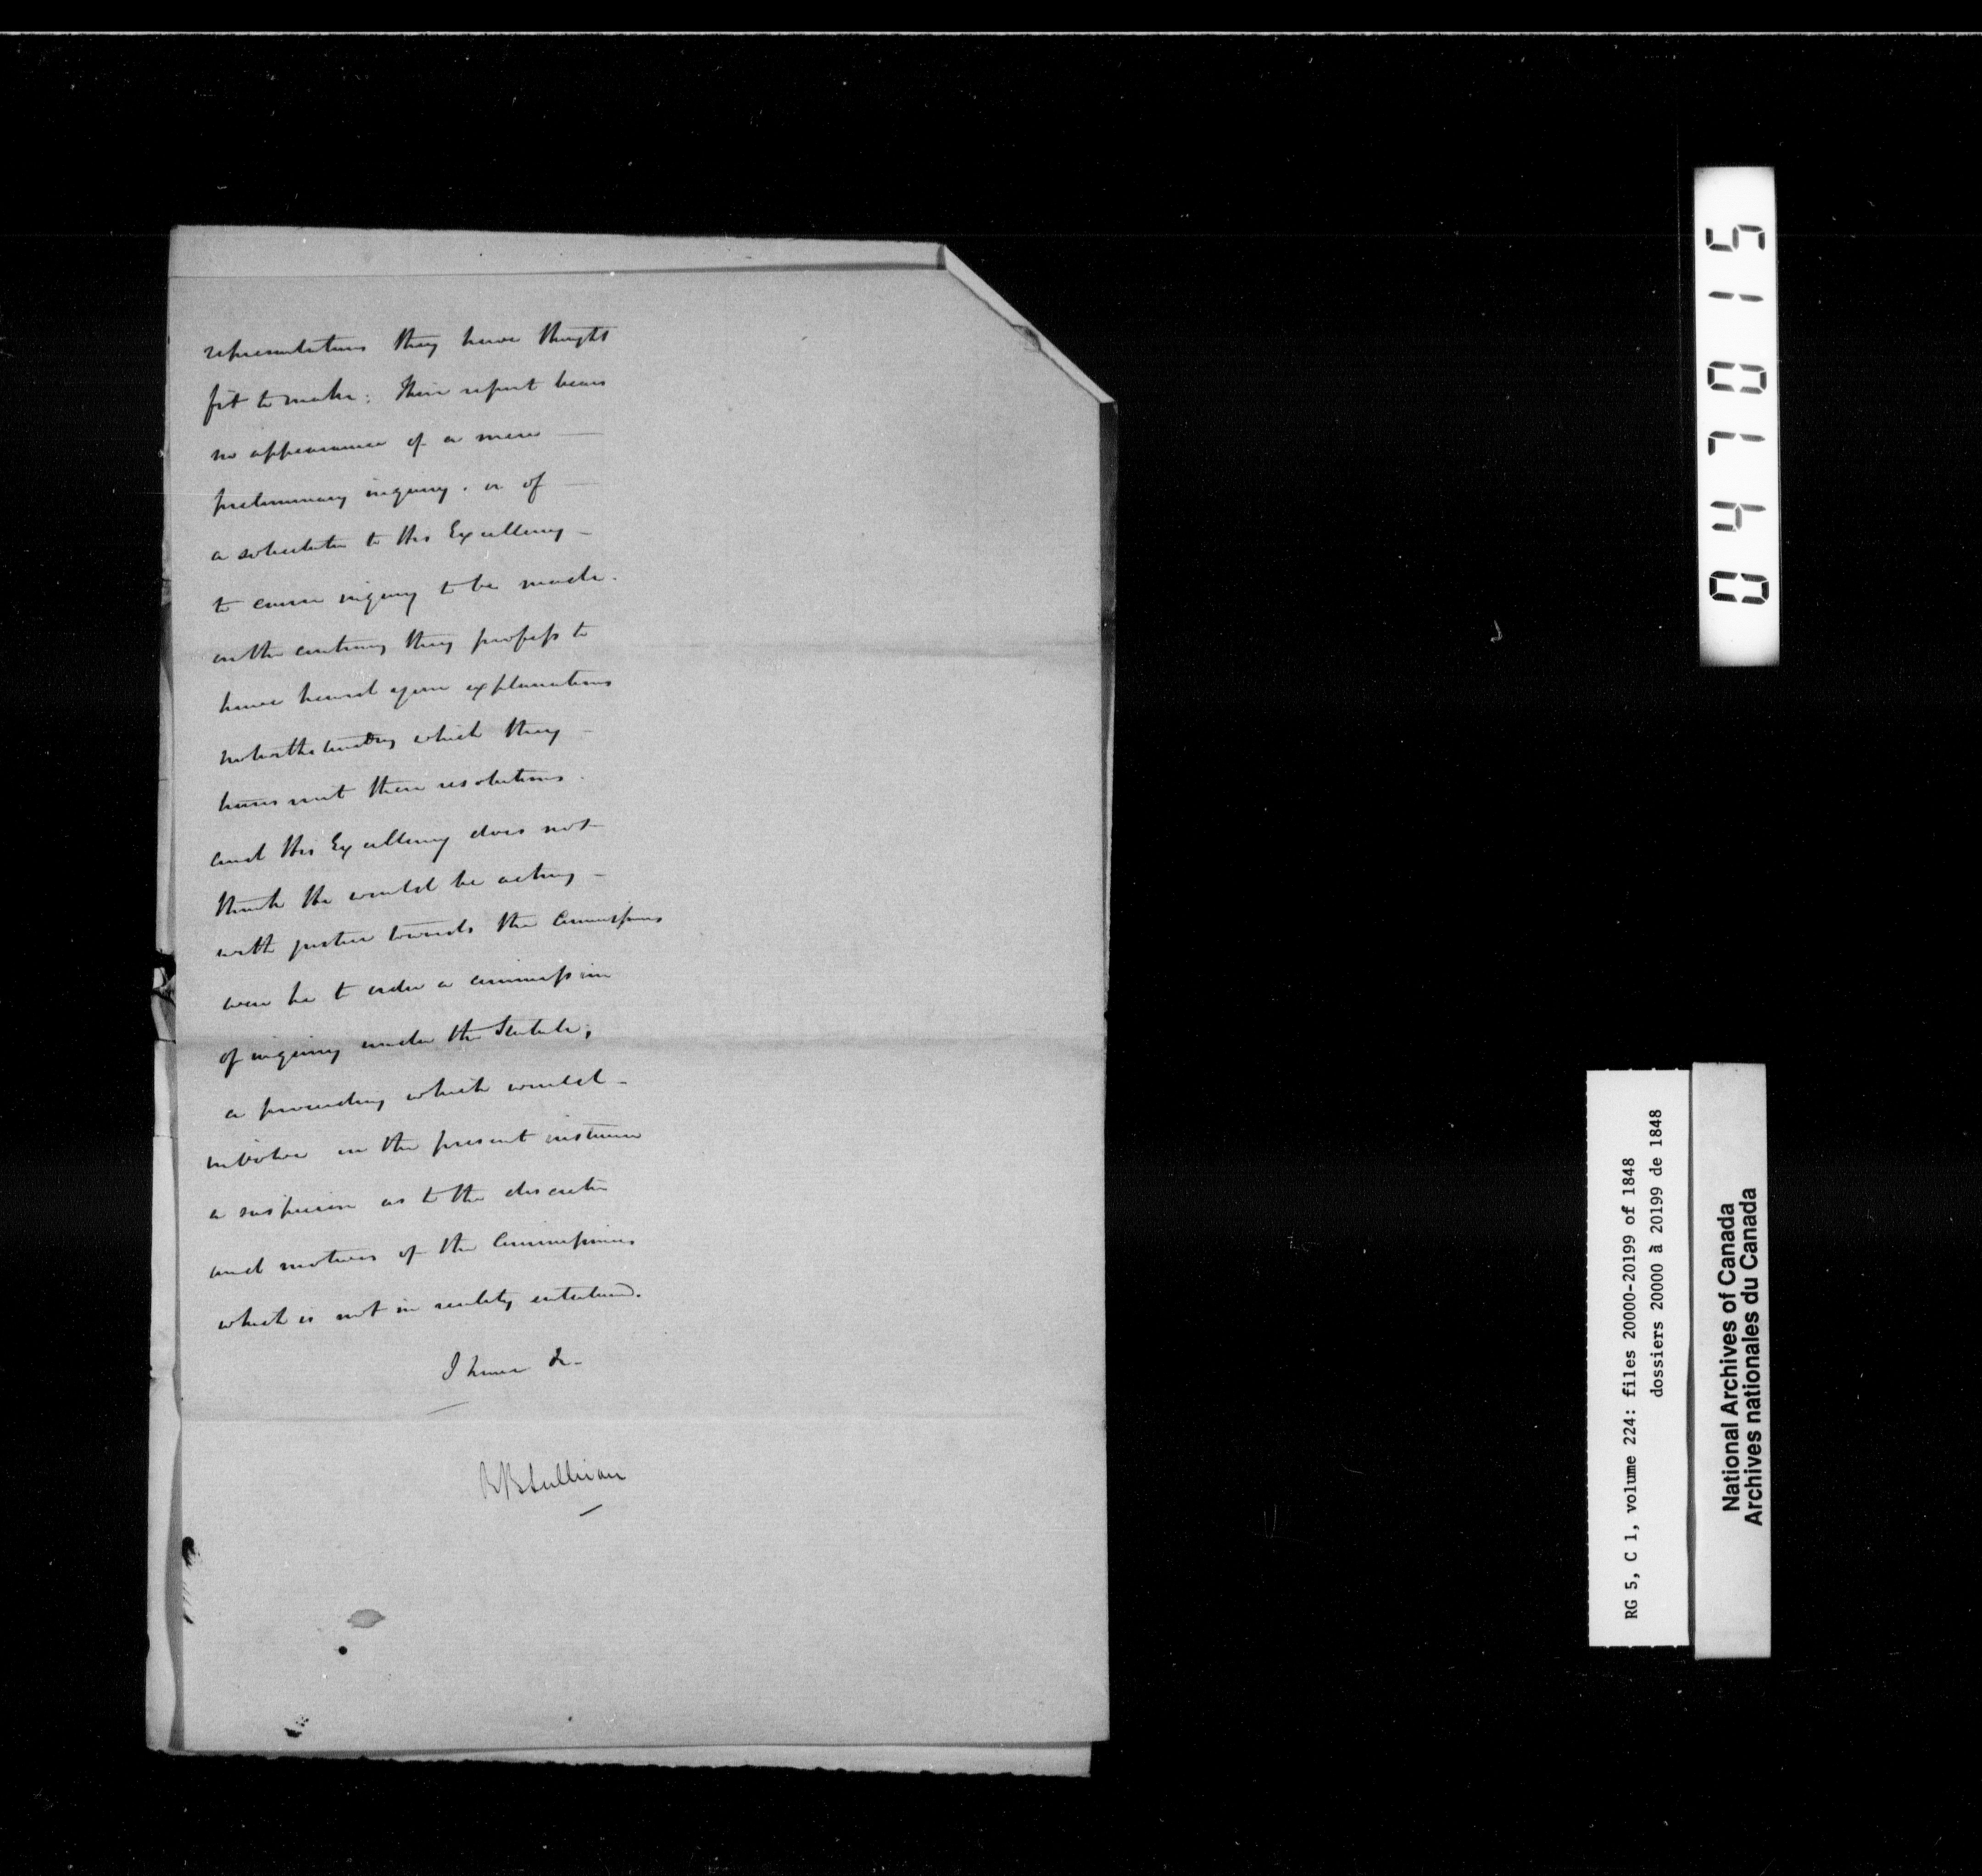 representations they have thought
fit to make; Their report bears
no appearance of a mere —
preliminary inquiry, or of —
a solicitation to His Excellency —
to cause inquiry to be made.
on the contrary they profess to
have heard explanations
notwithstanding which they —
have sent their resolutions.
and His Excellency does not
think He would be acting —
with justice towards the Commissioners
were he to order a commission
of inquiry under the Statute,
a proceeding which would —
involve in the present instance
a suspicion as to the discretion
and motives of the Commissioners
which is not in reality entertained.
I have &c
RB Sullivan
047015
RG 5, C 1, volume 224: files 20000-20199 of 1848
dossiers 20000 à 20199 de 1848
National Archives of Canada
Archives nationales du Canada